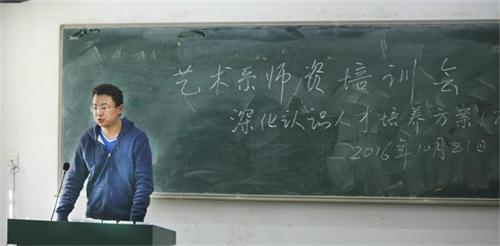 艺术系师资培训会
深化认识人才培养方案
2016年10月21日